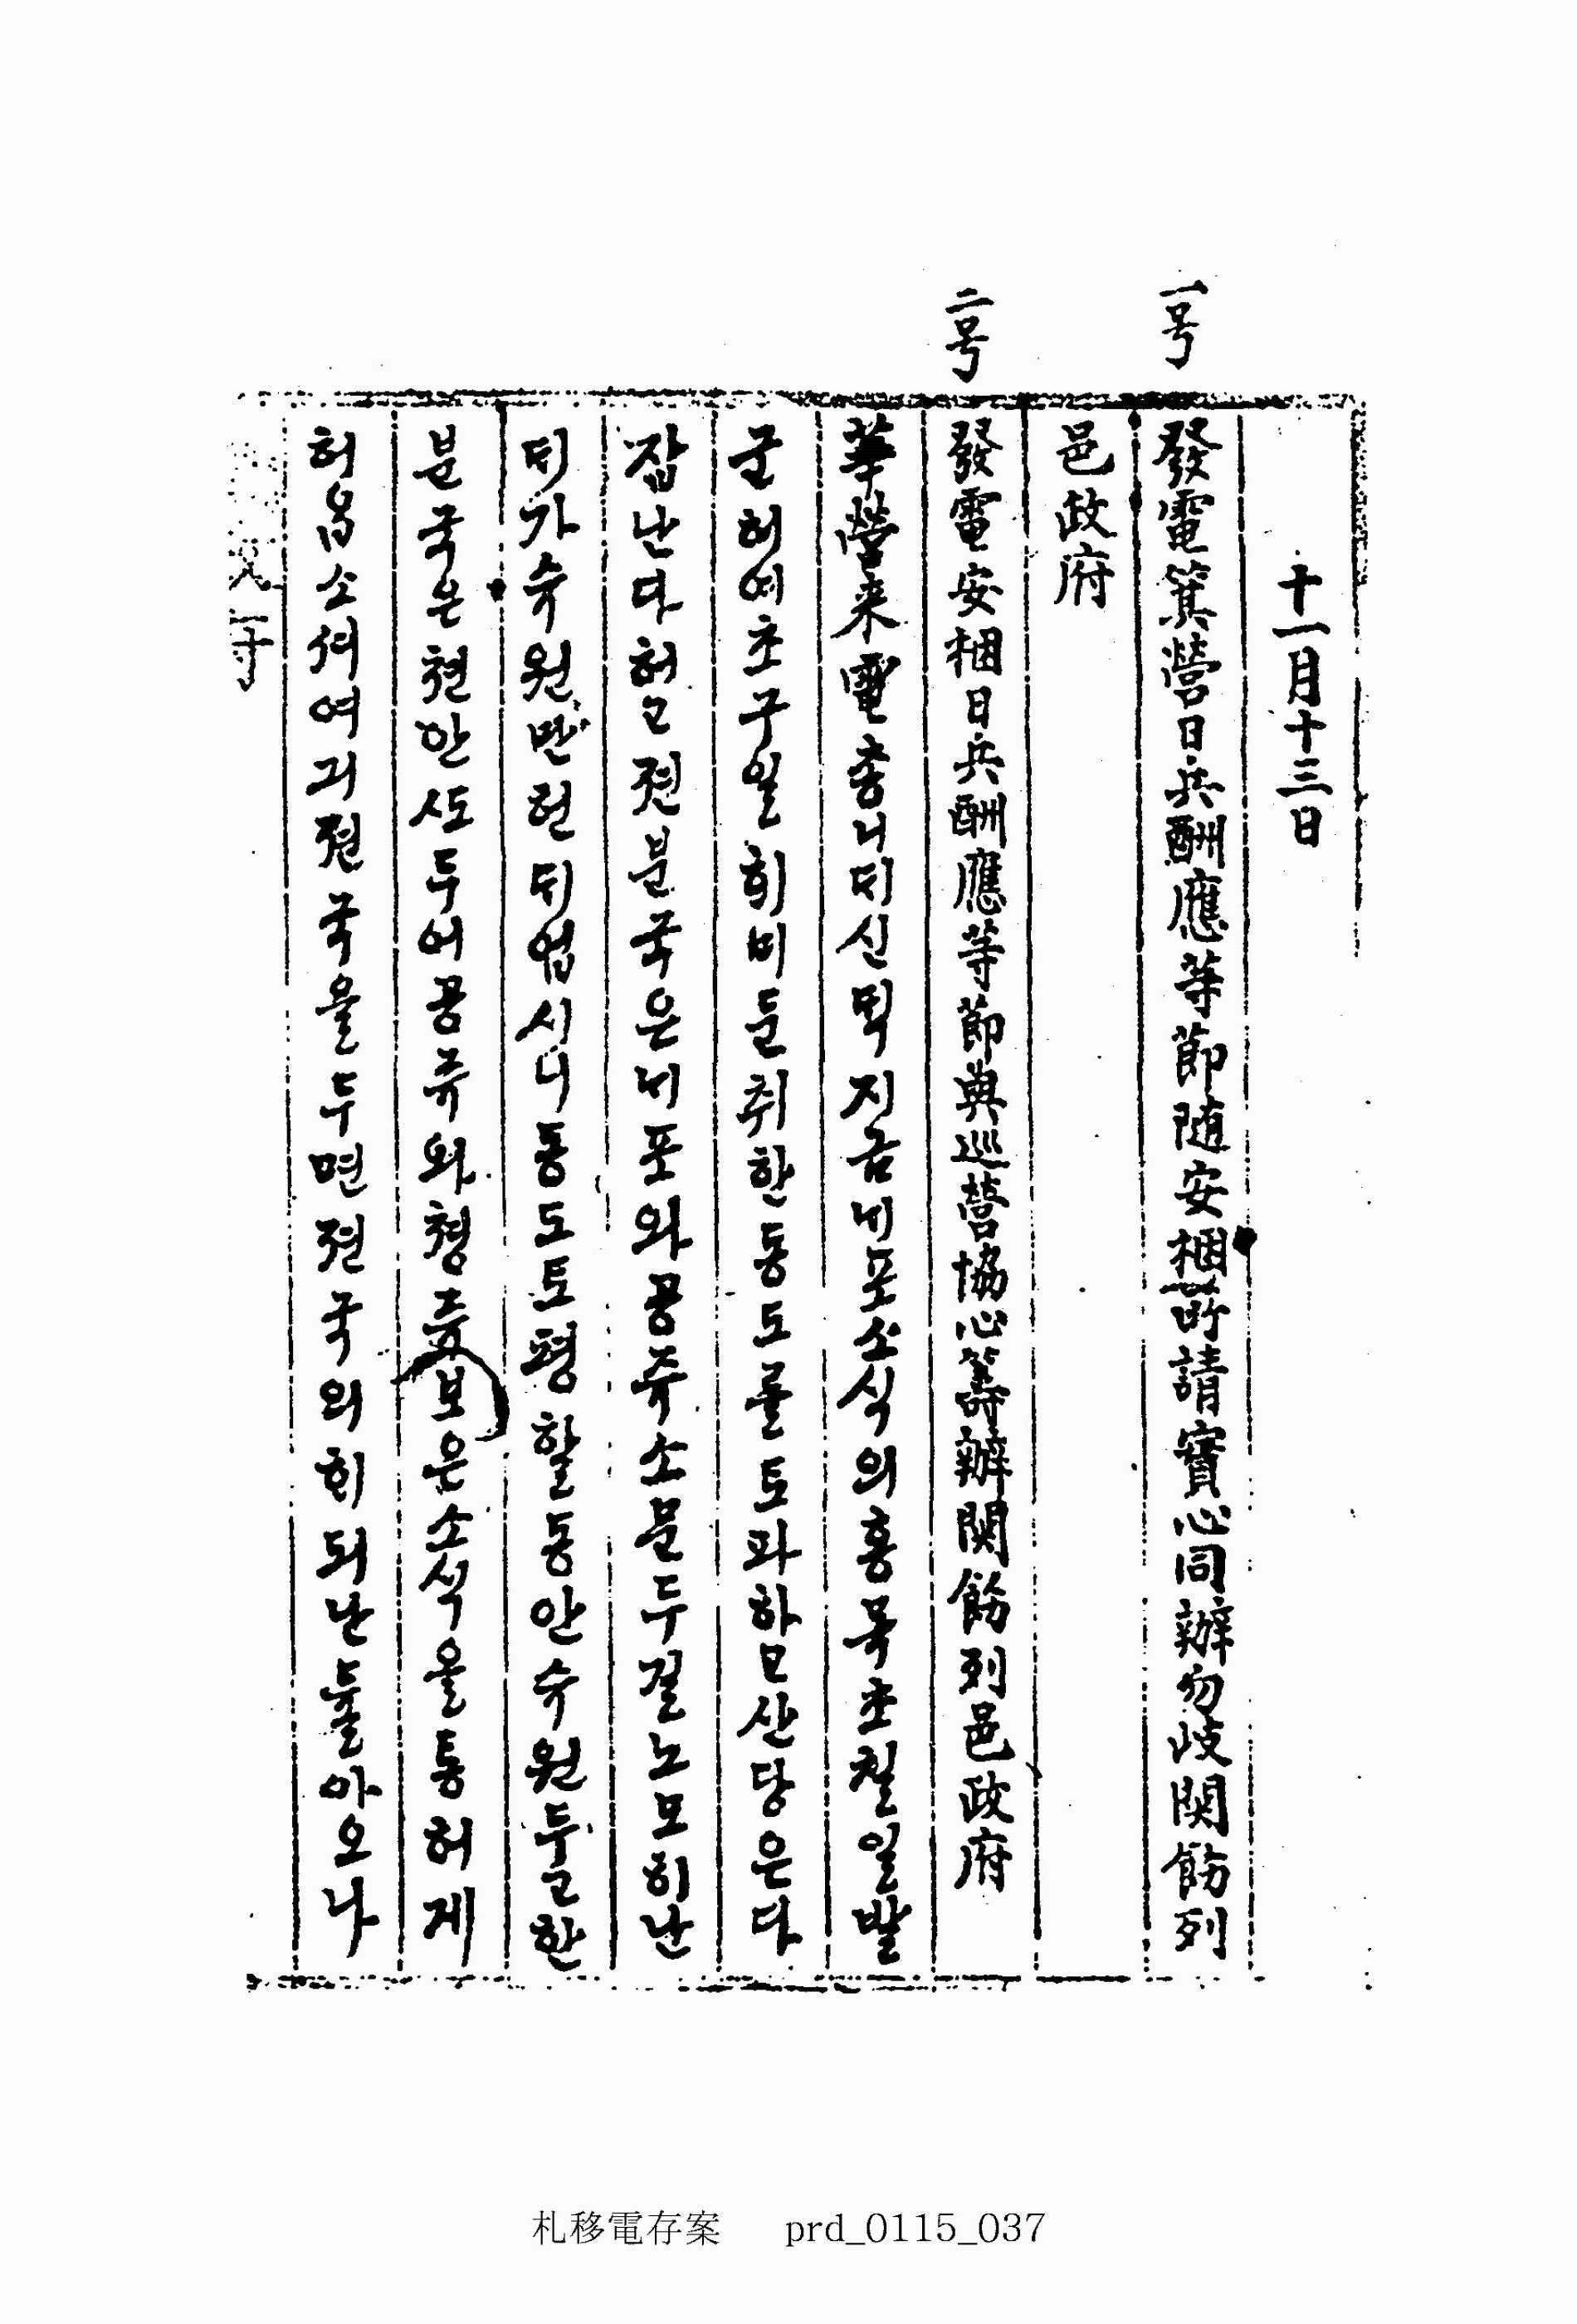 十一月十三日
一号
發電箕營日兵酬應等節随安梱所請實心同辦勿歧関飭列
邑政府
二号
發電安梱日兵酬應等節與巡營協心籌辦関飭列邑政府
華營来電총니듸신뎍지금늬포소식의홍목초칠일발
군허여초구일희미둔취한동도를토파하고산당은다
잡난다허고젼분국은늬포와공쥬소문두결노모히난
듸가슈원만헌듸업시니동도토평할동안슈원두월한
분국은현안사도두어공쥬와쳥쥬보은소식을통허게
허옵소셔여긔젼국을두면젼국의희되난둘아오나
札移電存案 prd_0115_037